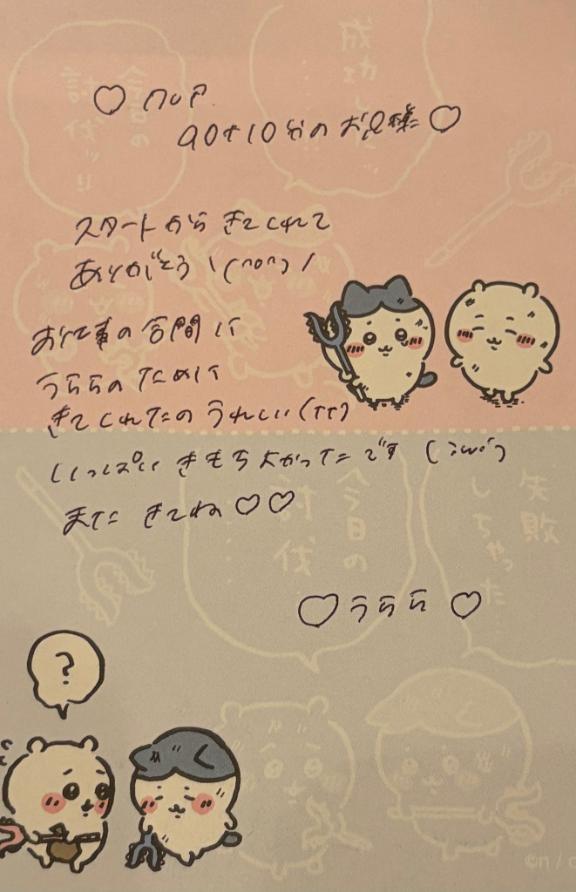 ♡ noA
90+10分のお兄様♡
スタートから きてくれて
ありがとう \(^o^)/
お仕事の合間に
うららのために
きてくれたの うれしい(TT)
いっぱい きもちよかったです (;ω;)
また きてね♡♡
♡うらら♡
?
成功し
……
今日の
討伐ッ!!
今日の
討伐
……
失敗
しちゃった
……
©n